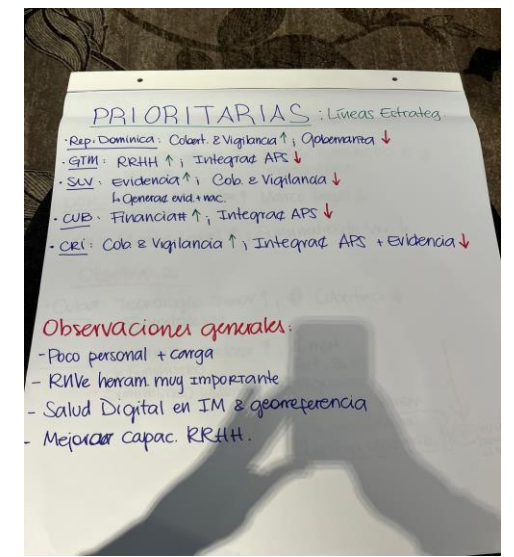 PRIORITARIAS : Líneas Estrateg.
· Rep. Dominica : Cobert. & Vigilancia ↑ ; Gobernanza ↓
· GTM : RRHH ↑ ; Integrac¢ APS ↓
· SLV : Evidencia ↑ ; Cob. & Vigilancia ↓
↳ Generac¢ evid. + nac.
· CUB : Financia# ↑ ; Integrac¢ APS ↓
· CRI : Cob & Vigilancia ↑ ; Integrac¢ APS + Evidencia ↓
Observaciones generales :
- Poco personal + carga
- RNVe herram. muy importante
- Salud Digital en IM & georreferencia
- Mejorar capac. RRHH.